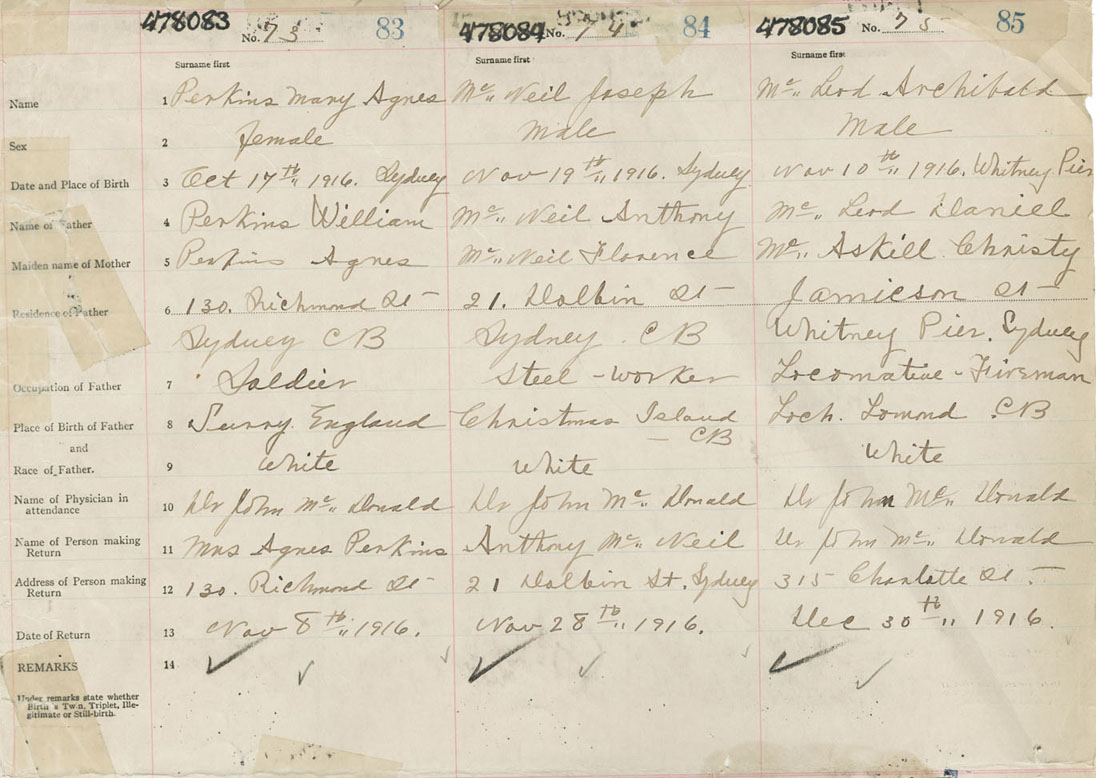 478083 No. 73 83 478084 No. 74 84 478085 No. 75 85
Surname first Surname first Surname first
Name 1 Perkins Mary Agnes Mc„ Neil Joseph Mc„ Leod Archibald
Sex 2 female Male Male
Date and Place of Birth 3 Oct 17th„ 1916. Sydney Nov 19th„ 1916. Sydney Nov 10th„ 1916. Whitney Pier
Name of Father 4 Perkins William Mc„ Neil Anthony Mc„ Leod Daniel
Maiden name of Mother 5 Perkins Agnes Mc„ Neil Florence Mc„ Askill Christy
Residence of Father 6 130. Richmond St 21. Dolbin St Jamieson St
Sydney CB Sydney. CB Whitney Pier. Sydney
Occupation of Father 7 Soldier Steel-worker Locomative-Fireman
Place of Birth of Father 8 Surry. England Christmas Island Loch. Lomond. CB
and – CB
Race of Father. 9 White White White
Name of Physician in attendance 10 Dr John Mc„ Donald Dr John Mc„ Donald Dr John Mc„ Donald
Name of Person making Return 11 Mrs Agnes Perkins Anthony Mc„ Neil Dr John Mc„ Donald
Address of Person making Return 12 130. Richmond St 21 Dolbin St. Sydney 315 Charlotte St.
Date of Return 13 Nov 8th„ 1916. Nov 28th„ 1916. Dec 30th„ 1916.
REMARKS 14
Under remarks state whether
Birth is Twin, Triplet, Ille-
gitimate or Still-birth.